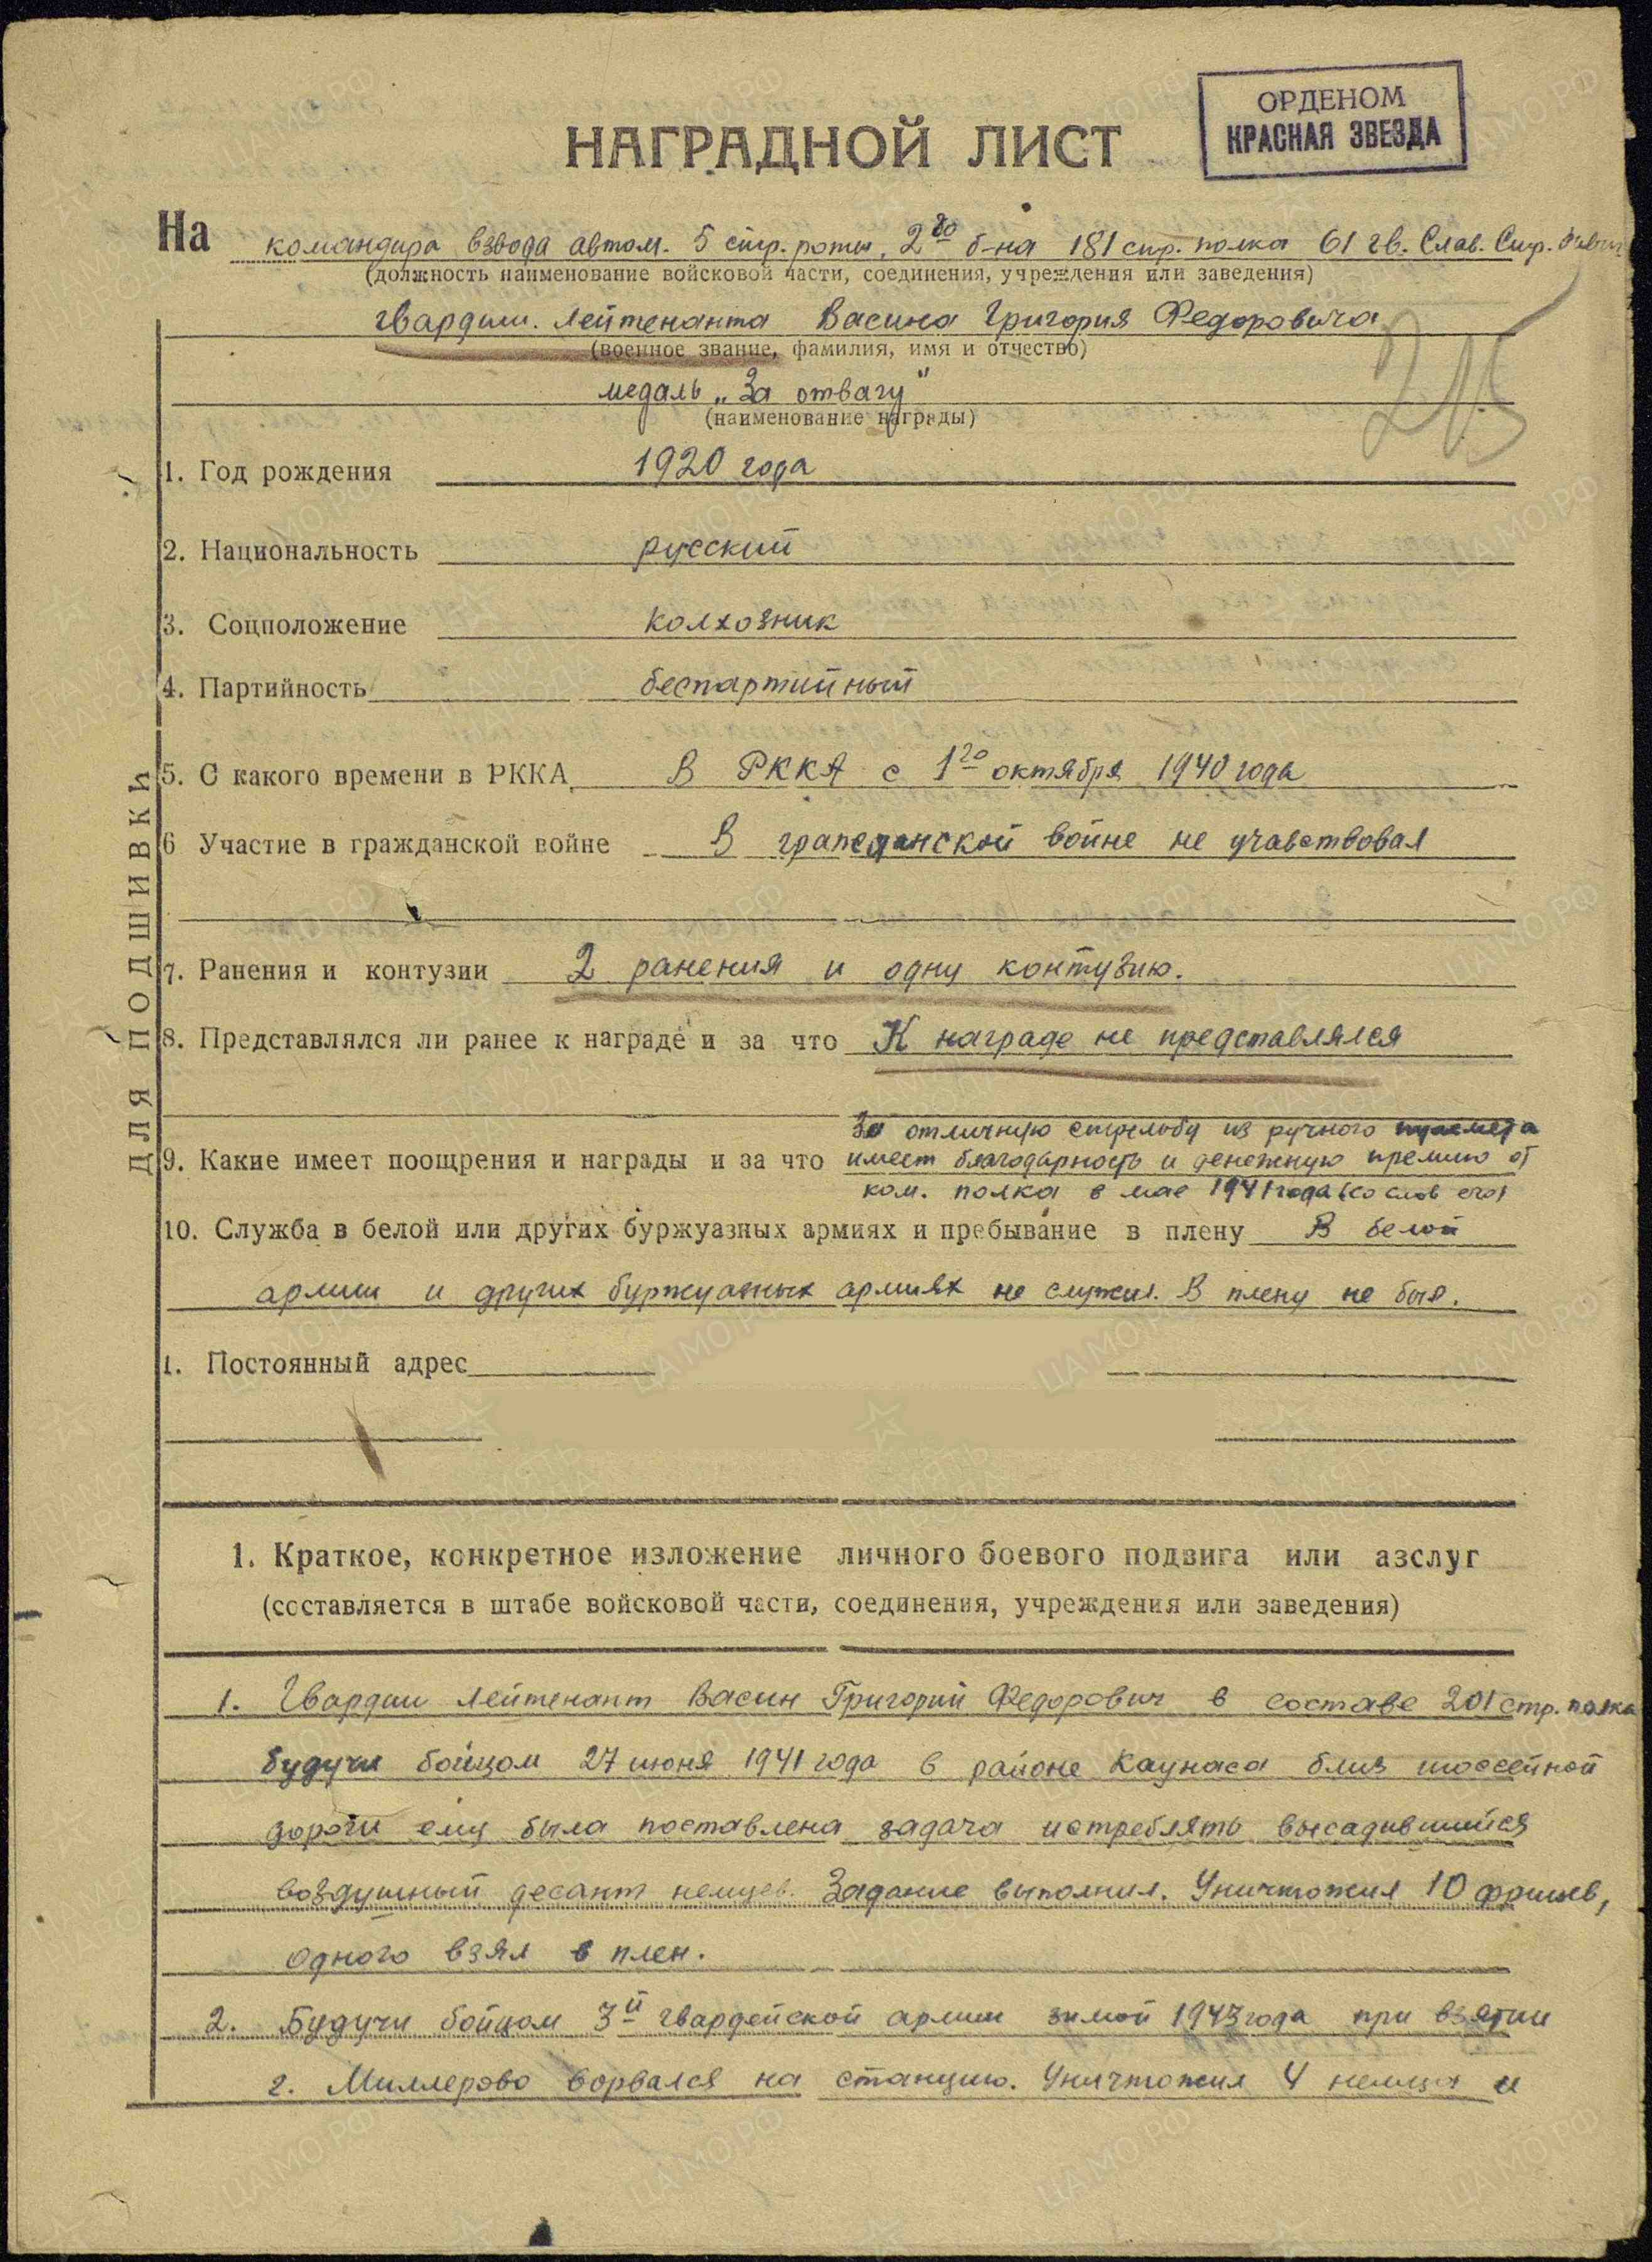 ОРДЕНОМ
КРАСНАЯ ЗВЕЗДА
НАГРАДНОЙ ЛИСТ
На командира взвода автом. 5 стр. роты, 2го б-на 181 стр. полка 61 гв. Слав. Стр. дивиз
(должность наименование войсковой части, соединения, учреждения или заведения)
гвардии. лейтенанта Васина Григория Федоровича
(военное звание, фамилия, имя и отчество)
медаль „За отвагу"
(наименование награды)
1. Год рождения 1920 года
2. Национальность русский
3. Соцположение колхозник
4. Партийность беспартийный
5. С какого времени в РККА В РККА с 1го октября 1940 года
6 Участие в гражданской войне В гражданской войне не учавствовал
7. Ранения и контузии 2 ранения и одну контузию.
8. Представлялся ли ранее к награде и за что К награде не представлялся
За отличную стрельбу из ручного пулемета
9. Какие имеет поощрения и награды и за что имеет благодарность и денежную премию от
ком. полка в мае 1941 года (со слов его)
10. Служба в белой или других буржуазных армиях и пребывание в плену В белой
армии и других буржуазных армиях не служил. В плену не был.
1. Постоянный адрес
ДЛЯ ПОДШИВКИ
1. Краткое, конкретное изложение личного боевого подвига или азслуг
(составляется в штабе войсковой части, соединения, учреждения или заведения)
1. Гвардии лейтенант Васин Григорий Федорович в составе 201 стр. полка
будучи бойцом 27 июня 1941 года в районе Каунаса близ шоссейной
дороги ему была поставлена задача истреблять высадившийся
воздушный десант немцев. Задание выполнил. Уничтожил 10 фрицев,
одного взял в плен.
2. Будучи бойцом 3й гвардейской армии зимой 1943 года при взятии
г. Миллерово ворвался на станцию. Уничтожил 4 немца и